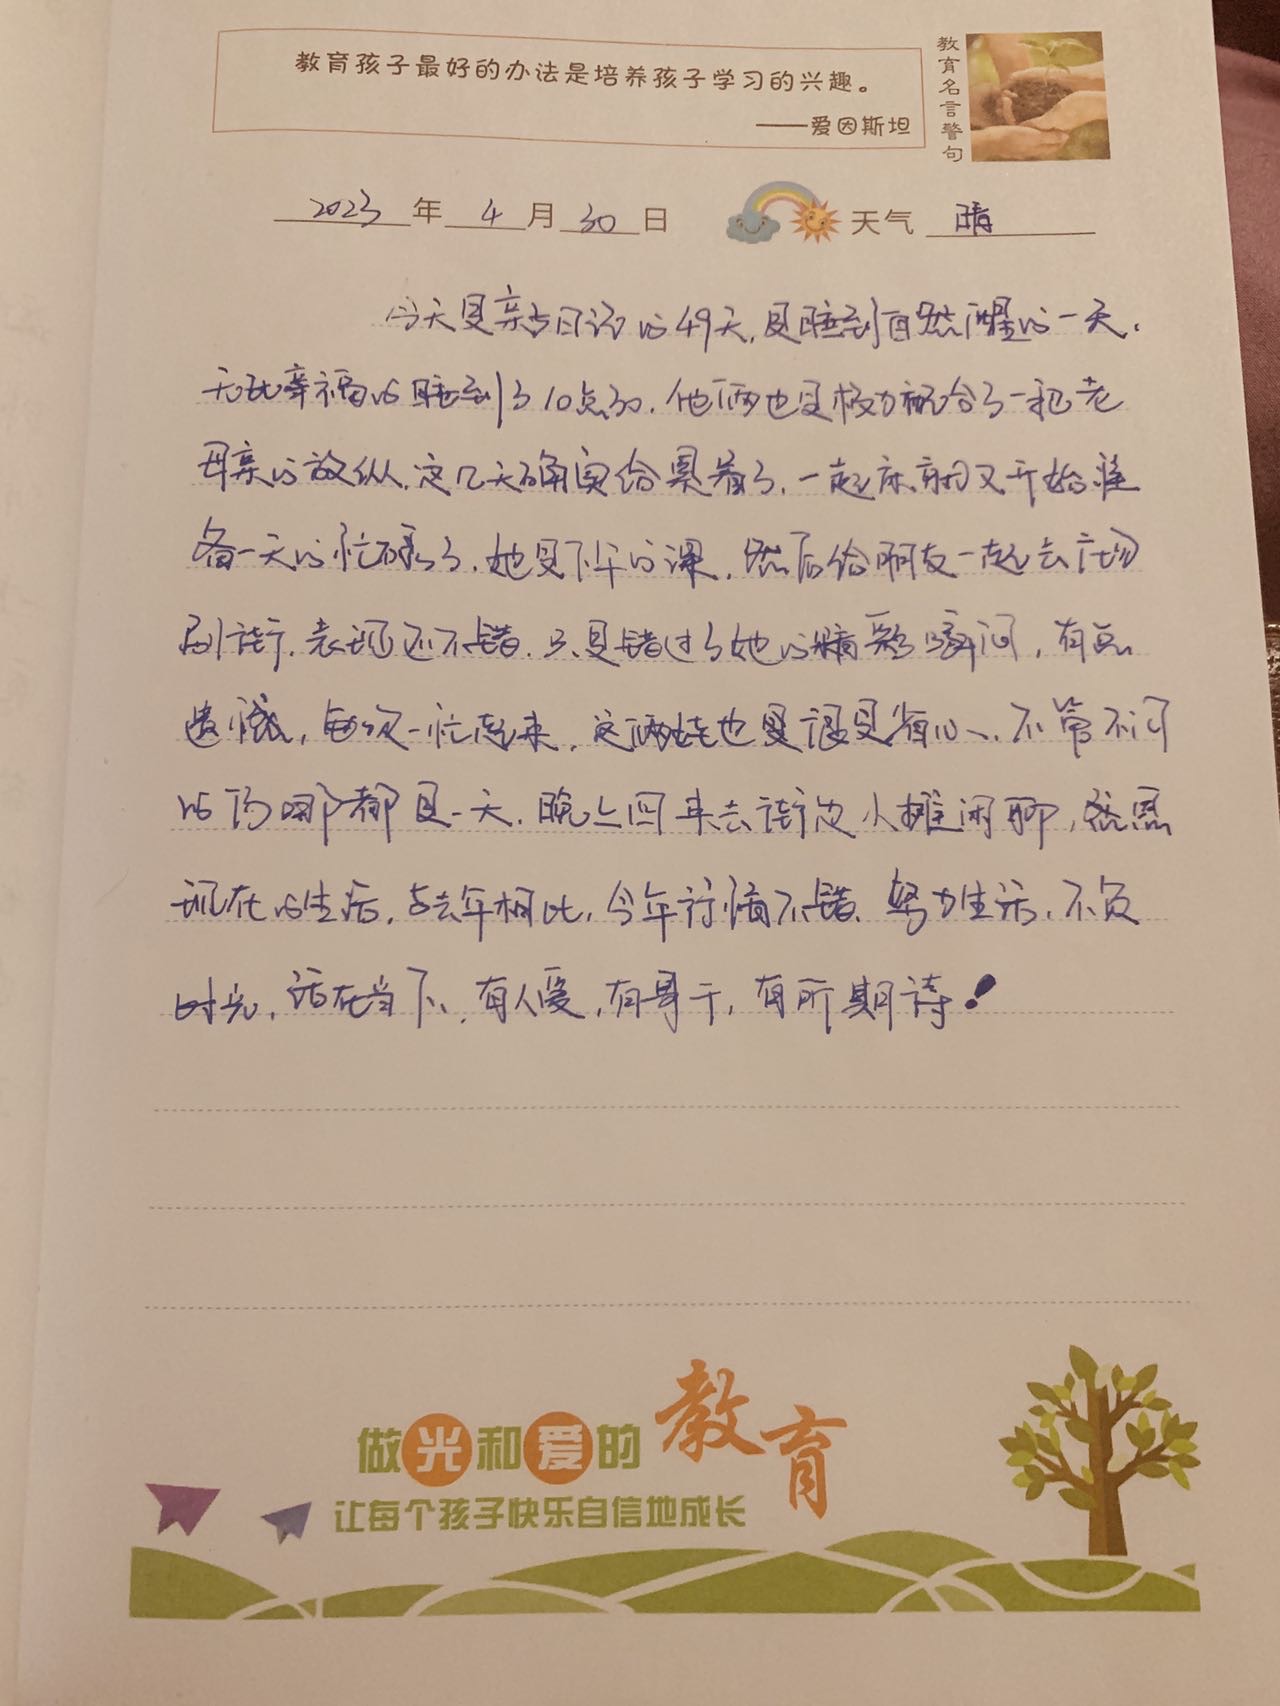 教育孩子最好的办法是培养孩子学习的兴趣。
——爱因斯坦
教育名言警句
2023年4月30日 天气 晴
今天是亲子日记的49天,是睡到自然醒的一天,
无比幸福的睡到了10点多,他俩也是极力配合了一把老
母亲的放纵,这几天确实给累着了,一起床就又开始准
备一天的忙碌了,她是下午的课,然后给朋友一起去广场
刷街,表现还不错,只是错过了她的精彩瞬间,有点
遗憾,每次一忙起来,这俩娃也是很是省心,不管不问
的 都是一天,晚上回来去街边小摊闲聊,感恩
现在的生活,与去年相比,今年行情不错,努力生活,不负
时光,活在当下,有人爱,有事干,有所期待!
做光和爱的教育
让每个孩子快乐自信地成长